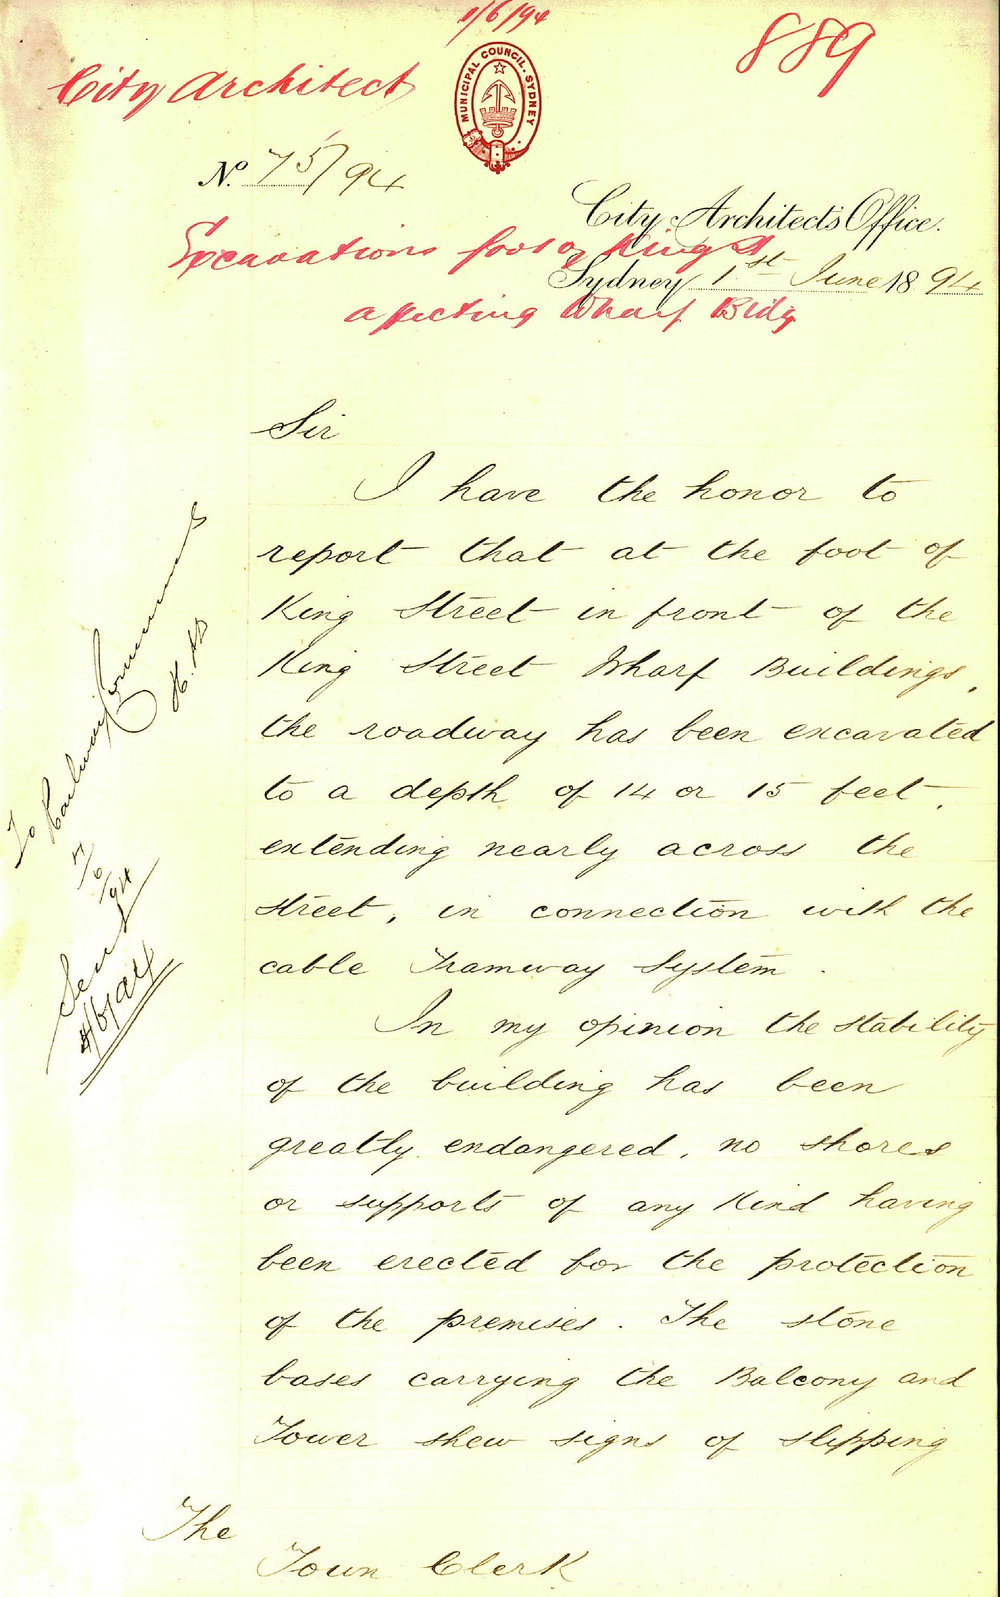 1/6/94
889
City Architect
MUNICIPAL COUNCIL. SYDNEY
No. 75/94
City Architect's Office.
Excavations foot of King St
Sydney 1st June 1894
affecting Wharf Bldg
Sir
I have the honor to
report that at the foot of
King Street in front of the
King Street Wharf Buildings,
the roadway has been excavated
to a depth of 14 or 15 feet,
extending nearly across the
street, in connection with the
cable Tramway System.
In my opinion the stability
of the building has been
greatly endangered, no shores
or supports of any kind having
been erected for the protection
of the premises. The stone
bases carrying the Balcony and
Tower shew signs of slipping
The
Town Clerk
To Railway
7/6/94